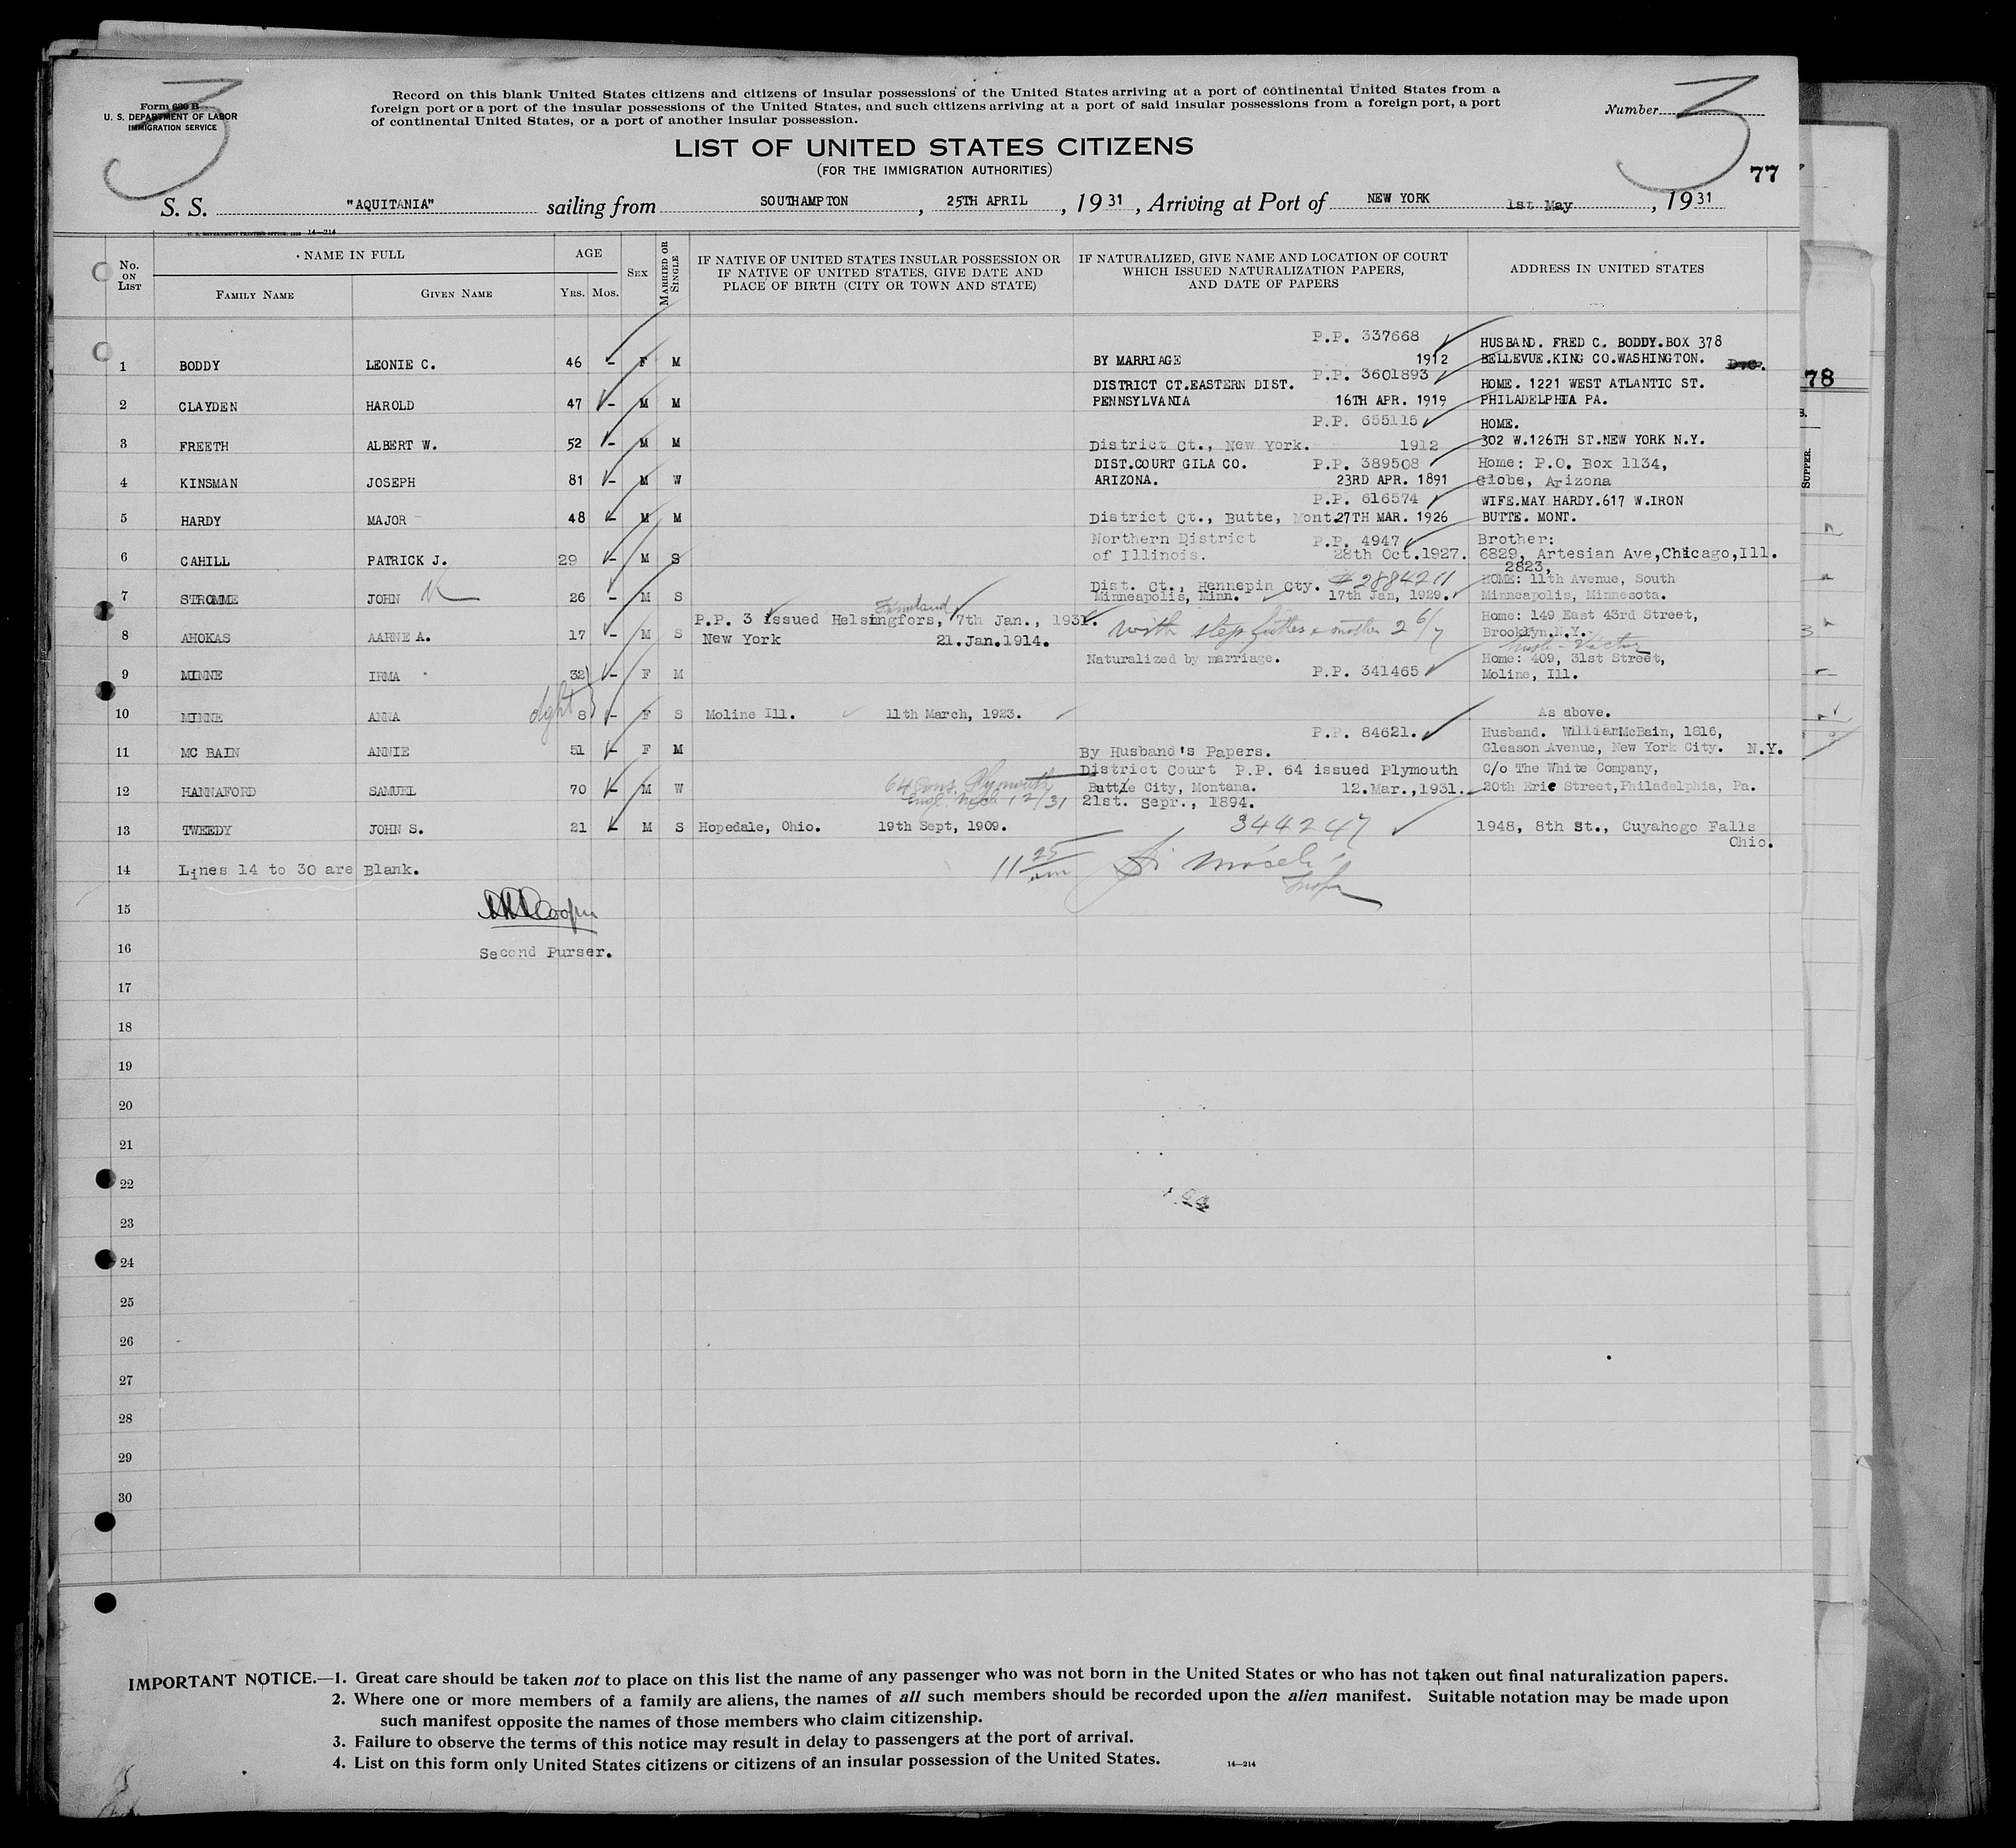 3
3
Form 630 B
U. S. DEPARTMENT OF LABOR
IMMIGRATION SERVICE
Record on this blank United States citizens and citizens of insular possessions of the United States arriving at a port of continental United States from a
foreign port or a port of the insular possessions of the United States, and such citizens arriving at a port of said insular possessions from a foreign port, a port
of continental United States, or a port of another insular possession.
Number
LIST OF UNITED STATES CITIZENS
(FOR THE IMMIGRATION AUTHORITIES)
77
S. S. "AQUITANIA" sailing from SOUTHAMPTON, 25TH APRIL, 1931, Arriving at Port of NEW YORK 1st May, 1931
14—214
No. ON LIST
NAME IN FULL
FAMILY NAME GIVEN NAME
AGE
YRS. MOS.
SEX
MARRIED OR SINGLE
IF NATIVE OF UNITED STATES INSULAR POSSESSION OR
IF NATIVE OF UNITED STATES, GIVE DATE AND
PLACE OF BIRTH (CITY OR TOWN AND STATE)
IF NATURALIZED, GIVE NAME AND LOCATION OF COURT
WHICH ISSUED NATURALIZATION PAPERS,
AND DATE OF PAPERS
ADDRESS IN UNITED STATES
P.P. 337668 HUSBAND. FRED C. BODDY.BOX 378
1 BODDY LEONIE C. 46 - F M BY MARRIAGE 1912 BELLEVUE.KING CO.WASHINGTON.
DISTRICT CT.EASTERN DIST. P.P. 3601893 HOME. 1221 WEST ATLANTIC ST.
2 CLAYDEN HAROLD 47 - M M PENNSYLVANIA 16TH APR. 1919 PHILADELPHIA PA.
P.P. 655115 HOME.
3 FREETH ALBERT W. 52 - M M District Ct., New York. 1912 302 W.126TH ST.NEW YORK N.Y.
DIST.COURT GILA CO. P.P. 389508 Home: P.O. Box 1134,
4 KINSMAN JOSEPH 81 - M W ARIZONA. 23RD APR. 1891 Globe, Arizona
P.P. 616574 WIFE.MAY HARDY.617 W.IRON
5 HARDY MAJOR 48 - M M District Ct., Butte, Mont. 27TH MAR. 1926 BUTTE. MONT.
Northern District P.P. 4947 Brother:
6 CAHILL PATRICK J. 29 - M S of Illinois. 28th Oct.1927. 6829, Artesian Ave,Chicago,Ill.
2823,
Dist. Ct., Hennepin Cty. # 2884211 HOME: 11th Avenue, South
7 STROMME JOHN 26 - M S Minneapolis, Minn. 17th Jan, 1929. Minneapolis, Minnesota.
Finnland
P.P. 3 issued Helsingfors, 7th Jan., 1931. Home: 149 East 43rd Street,
8 AHOKAS AARNE A. 17 - M S New York 21.Jan.1914. with step father & mother 2 6/7 Brooklyn.N.Y.
Naturalized by marriage. Home: 409, 31st Street,
9 MINNE IRMA 32 - F M P.P. 341465 Moline, Ill.
dght
10 MINNE ANNA 8 - F S Moline Ill. 11th March, 1923. As above.
P.P. 84621. Husband. William McBain, 1816,
11 MC BAIN ANNIE 51 - F M By Husband's Papers. Gleason Avenue, New York City. N.Y.
District Court P.P. 64 issued Plymouth C/o The White Company,
12 HANNAFORD SAMUEL 70 - M W Butte City, Montana. 12.Mar.,1931. 20th Erie Street,Philadelphia, Pa.
21st. sepr., 1894.
13 TWEEDY JOHN S. 21 - M S Hopedale, Ohio. 19th Sept, 1909. 344247 1948, 8th St., Cuyahogo Falls
Ohio.
14 Lines 14 to 30 are Blank. 11 25 am
15
16 Second Purser.
17
18
19
20
21
22
23
24
25
26
27
28
29
30
IMPORTANT NOTICE.—1. Great care should be taken not to place on this list the name of any passenger who was not born in the United States or who has not taken out final naturalization papers.
2. Where one or more members of a family are aliens, the names of all such members should be recorded upon the alien manifest. Suitable notation may be made upon
such manifest opposite the names of those members who claim citizenship.
3. Failure to observe the terms of this notice may result in delay to passengers at the port of arrival.
4. List on this form only United States citizens or citizens of an insular possession of the United States.
14—214
78
SUPPER.